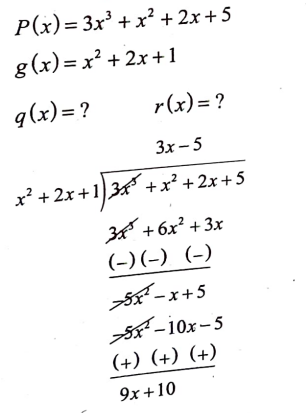 P(x) = 3x³ + x² + 2x + 5
g(x) = x² + 2x + 1
q(x) = ? r(x) = ?
3x − 5
x² + 2x + 1) 3x³ + x² + 2x + 5
3x³ + 6x² + 3x
(−) (−) (−)
−5x² − x + 5
−5x² − 10x − 5
(+) (+) (+)
9x + 10